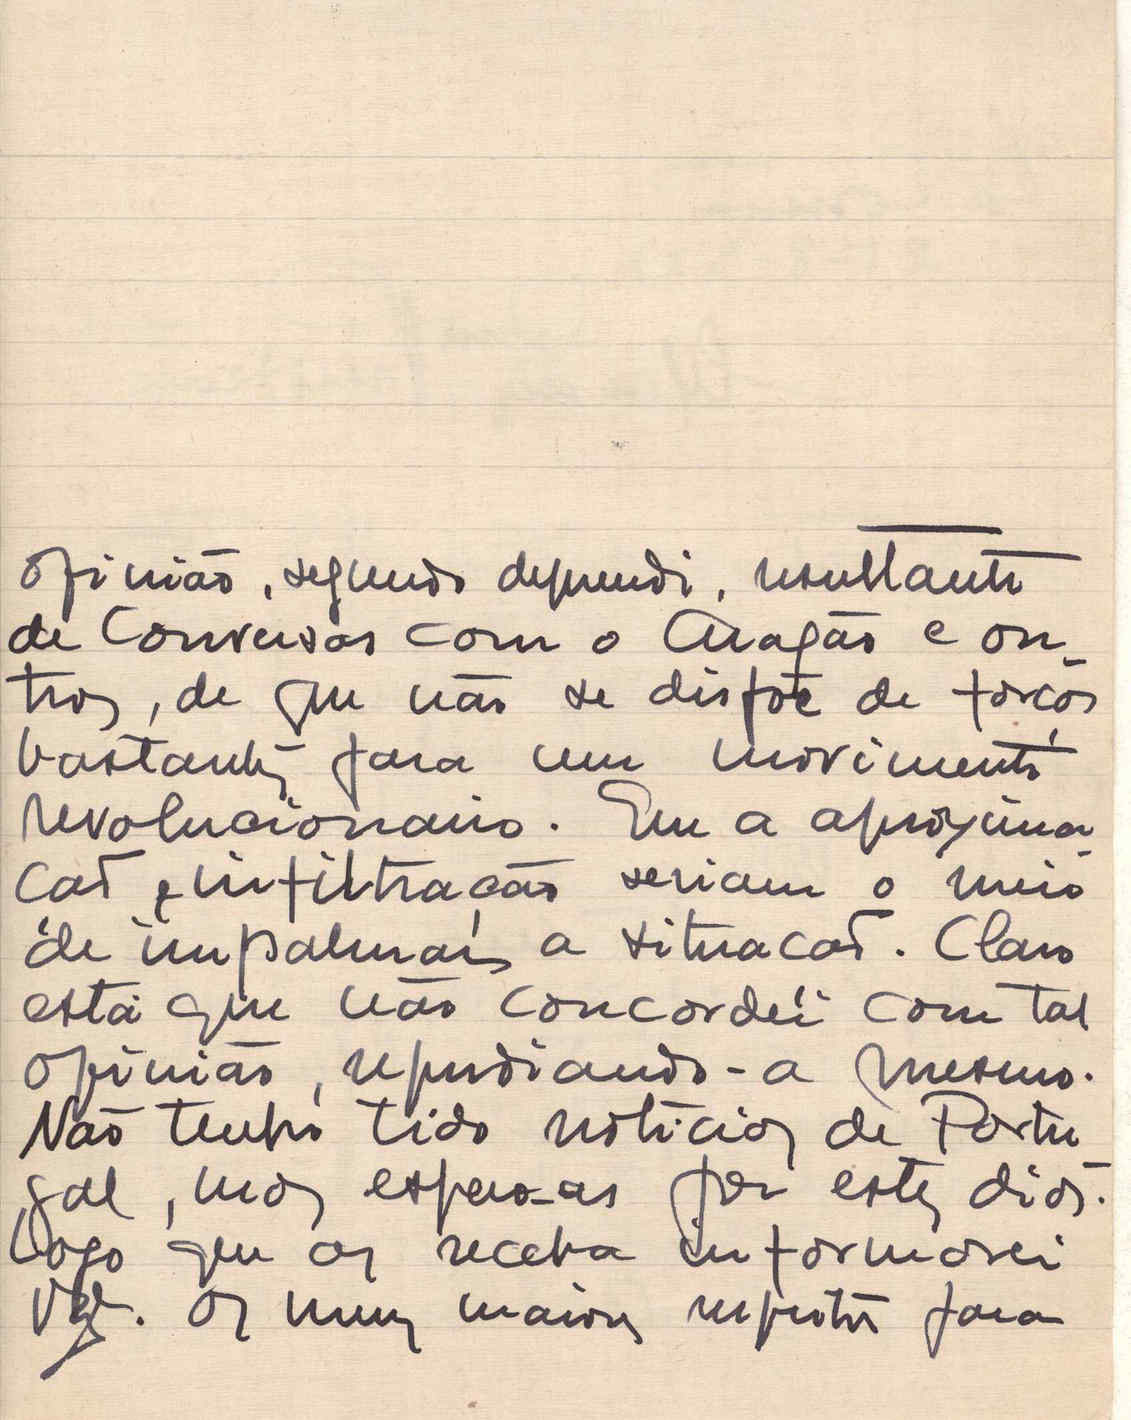 opinião, segundo depreendi, resultante
de conversas com o Aragão e ou-
tros, de que não se dispõe de forças
bastantes para um movimento
revolucionario. Que a aproxima
ção e infiltração seriam o meio
de impalmar a situação. Claro
está que não concordei com tal
opinião, repudiando-a mesmo.
Não tenho tido noticias de Portu
gal, mas espero-as por estes dias.
Logo que as receba informarei
Os meus maiores respeitos para